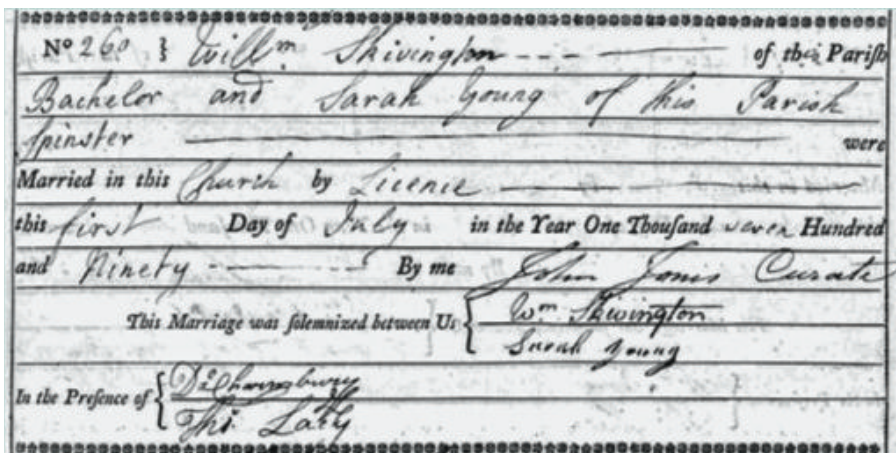 No 260 } Willm Skivington of this Parish
Bachelor and Sarah Young of this Parish
Spinster were
Married in this Church by Licence
this first Day of July in the Year One Thousand seven Hundred
and Ninety By me John Jones Curate
This Marriage was solemnized between Us { Wm Skivington
Sarah Young
In the Presence of {
Thos